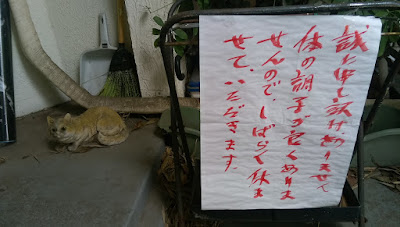 誠に申し訳けありません
体の調子が良くありま
せんので、しばらく休ま
せて、いただきます